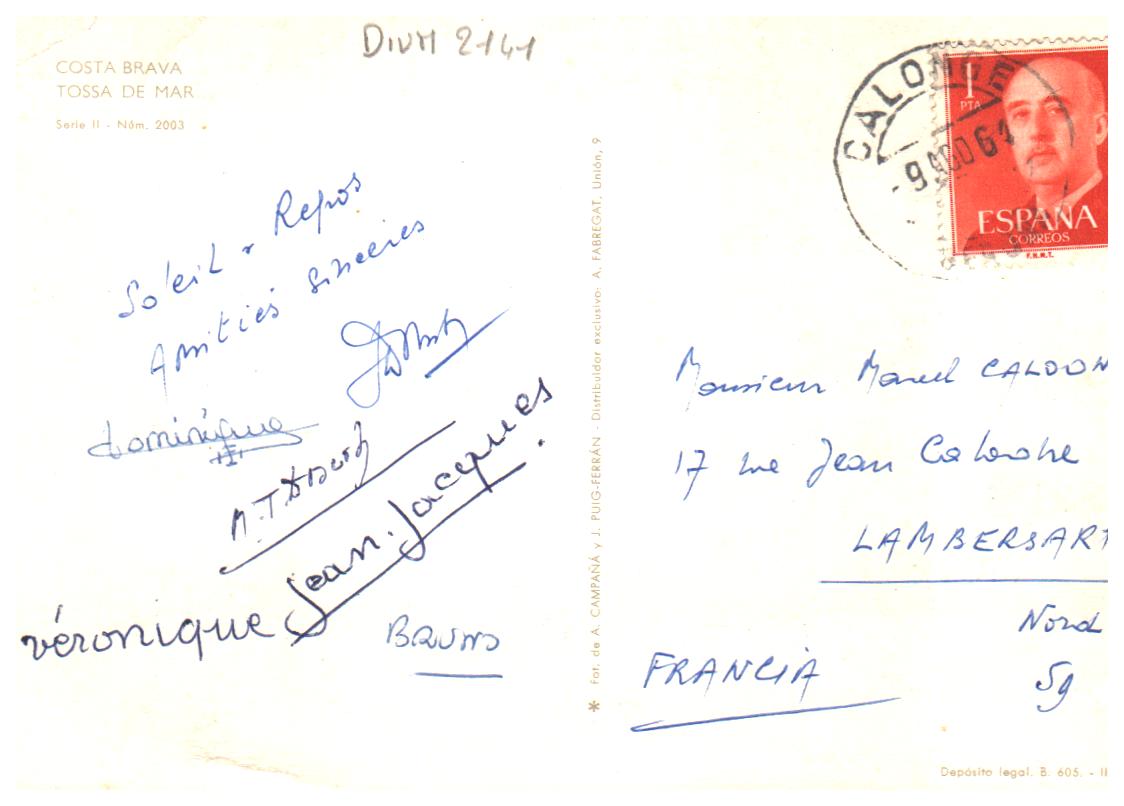 DIVM 2141
COSTA BRAVA
TOSSA DE MAR
Serie II - Núm. 2003
Soleil & Repos
Amitiés sincères
Dominique
M.T.
Jean-Jacques
Véronique
BRUNO
Fot. de A. CAMPAÑÁ y J. PUIG-FERRÁN - Distribuidor exclusivo: A. FABREGAT, Unión, 9
CALONGE
-9 AGO 61
1
PTA
ESPAÑA
CORREOS
F.N.M.T.
Monsieur Marcel CALDON
17 rue Jean
LAMBERSART
Nord
59
FRANCIA
Depósito legal. B. 605. - II